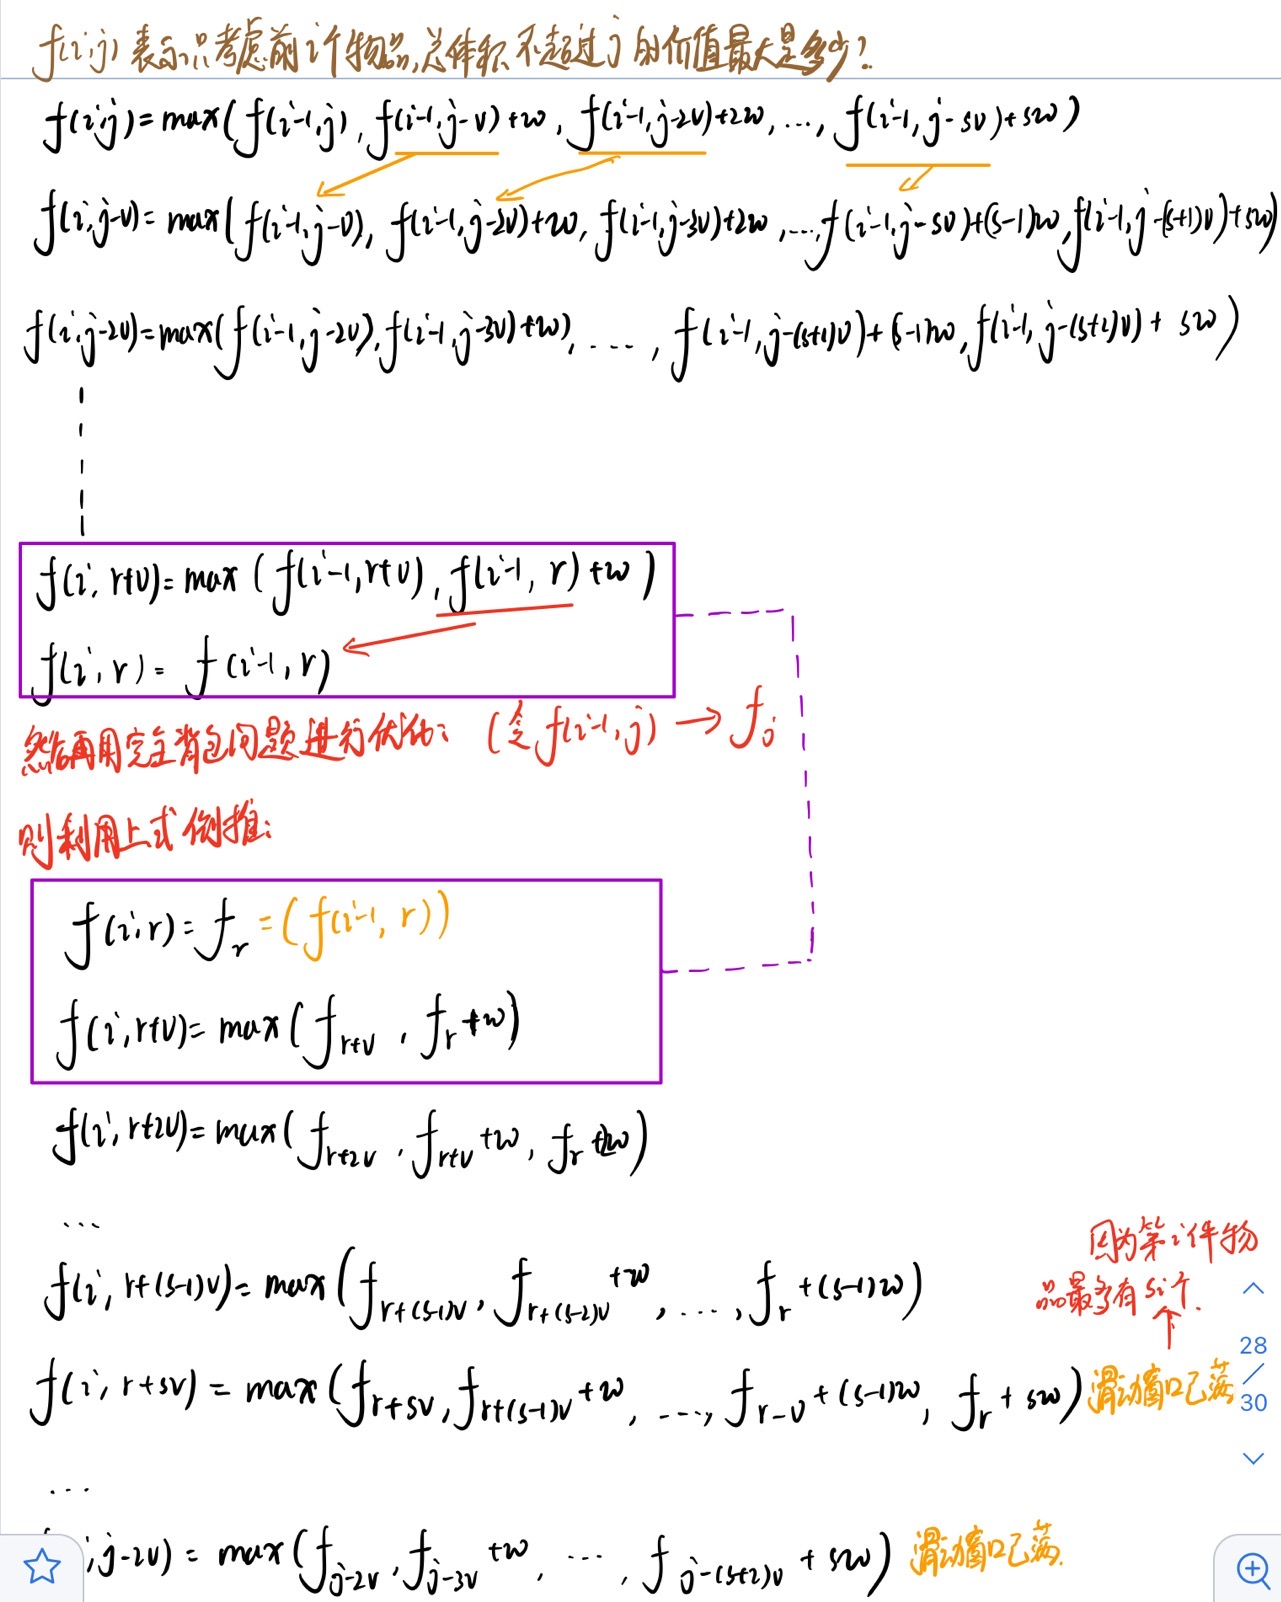 f(i,j) 表示只考虑前i个物品,总体积不超过j的价值最大是多少?
f(i,j)=max(f(i-1,j), f(i-1,j-v)+w, f(i-1,j-2v)+2w, ..., f(i-1,j-sv)+sw)
f(i,j-v)=max(f(i-1,j-v), f(i-1,j-2v)+w, f(i-1,j-3v)+2w, ..., f(i-1,j-sv)+(s-1)w, f(i-1,j-(s+1)v)+sw)
f(i,j-2v)=max(f(i-1,j-2v), f(i-1,j-3v)+w), ...., f(i-1,j-(s+1)v)+(s-1)w, f(i-1,j-(s+2)v)+sw)
f(i,r+v)=max(f(i-1,r+v), f(i-1,r)+w)
f(i,r)=f(i-1,r)
然后再用完全背包问题进行优化: (令f(i-1,j)→f_j
则利用上式倒推:
f(i,r)=f_r=(f(i-1,r))
f(i,r+v)=max(f_{r+v}, f_r+w)
f(i,r+2v)=max(f_{r+2v}, f_{r+v}+w, f_r+2w)
...
f(i,r+(s-1)v)=max(f_{r+(s-1)v}, f_{r+(s-2)v}+w, ..., f_r+(s-1)w)
因为第i件物
品最多有si个.
28
/
30
f(i,r+sv)=max(f_{r+sv}, f_{r+(s-1)v}+w, ..., f_{r-v}+(s-1)w, f_r+sw) 滑动窗口已满
...
,j-2v)=max(f_{j-2v}, f_{j-3v}+w, ..., f_{j-(s+2)v}+sw) 滑动窗口已满.